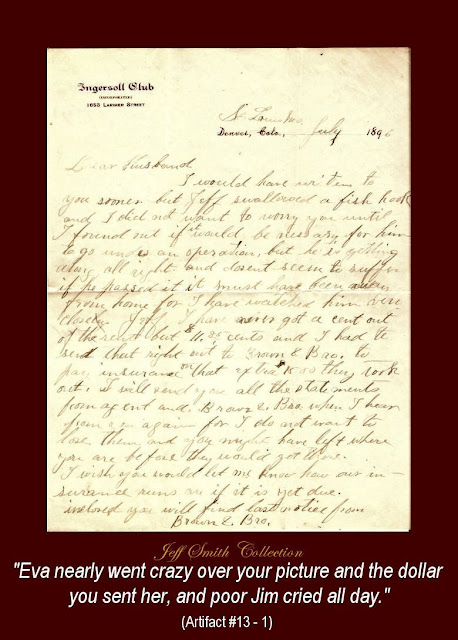 Ingersoll Club
(INCORPORATED)
1653 LARIMER STREET
St Louis Mo
Denver, Colo., July 1896
Dear Husband
I would have writen to
you sooner but Jeff swallowed a fish hook
and I did not want to worry you until
I found out if would be nessary for him
to go under an operation, but he is getting
along all right and dosent seem to suffer
if he passed it it must have been away
from home for I have watched him very
closely. I have never got a cent out
of the rent but $11.25 cents and I had to
send that right out to Brown & Bro. to
pay insurance on that extra they took
out. I will send you all the statements
from agent and Brown & Bro when I hear
from you again for I do not want to
lose them and you might have left where
you are before they would get there.
I wish you would let me know how our in-
surance runs or if it is yet due.
inclosed you will find last notice from
Brown & Bro.
Jeff Smith Collection
"Eva nearly went crazy over your picture and the dollar
you sent her, and poor Jim cried all day."
(Artifact #13 - 1)